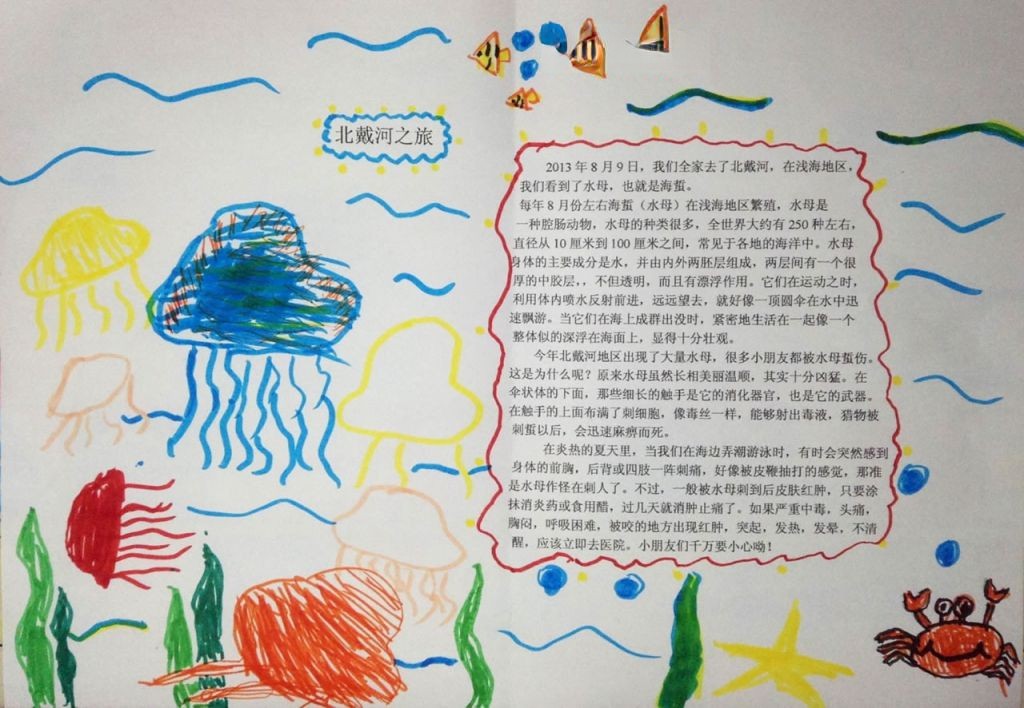 北戴河之旅
2013 年 8 月 9 日，我们全家去了北戴河，在浅海地区，
我们看到了水母，也就是海蜇。
每年 8 月份左右海蜇（水母）在浅海地区繁殖，水母是
一种腔肠动物，水母的种类很多，全世界大约有 250 种左右，
直径从 10 厘米到 100 厘米之间，常见于各地的海洋中。水母
身体的主要成分是水，并由内外两胚层组成，两层间有一个很
厚的中胶层，，不但透明，而且有漂浮作用。它们在运动之时，
利用体内喷水反射前进，远远望去，就好像一项圆伞在水中迅
速飘游。当它们在海上成群出没时，紧密地生活在一起像一个
整体似的深浮在海面上，显得十分壮观。
今年北戴河地区出现了大量水母，很多小朋友都被水母蜇伤。
这是为什么呢？原来水母虽然长相美丽温顺，其实十分凶猛。在
伞状体的下面，那些细长的触手是它的消化器官，也是它的武器。
在触手的上面布满了刺细胞，像毒丝一样，能够射出毒液，猎物被
刺蜇以后，会迅速麻痹而死。
在炎热的夏天里，当我们在海边弄潮游泳时，有时会突然感到
身体的前胸，后背或四肢一阵刺痛，好像被皮鞭抽打的感觉，那准
是水母作怪在刺人了。不过，一般被水母刺到后皮肤红肿，只要涂
抹消炎药或食用醋，过几天就消肿止痛了。如果严重中毒，头痛，
胸闷，呼吸困难，被咬的地方出现红肿，突起，发热，发晕，不清
醒，应该立即去医院。小朋友们千万要小心呦！